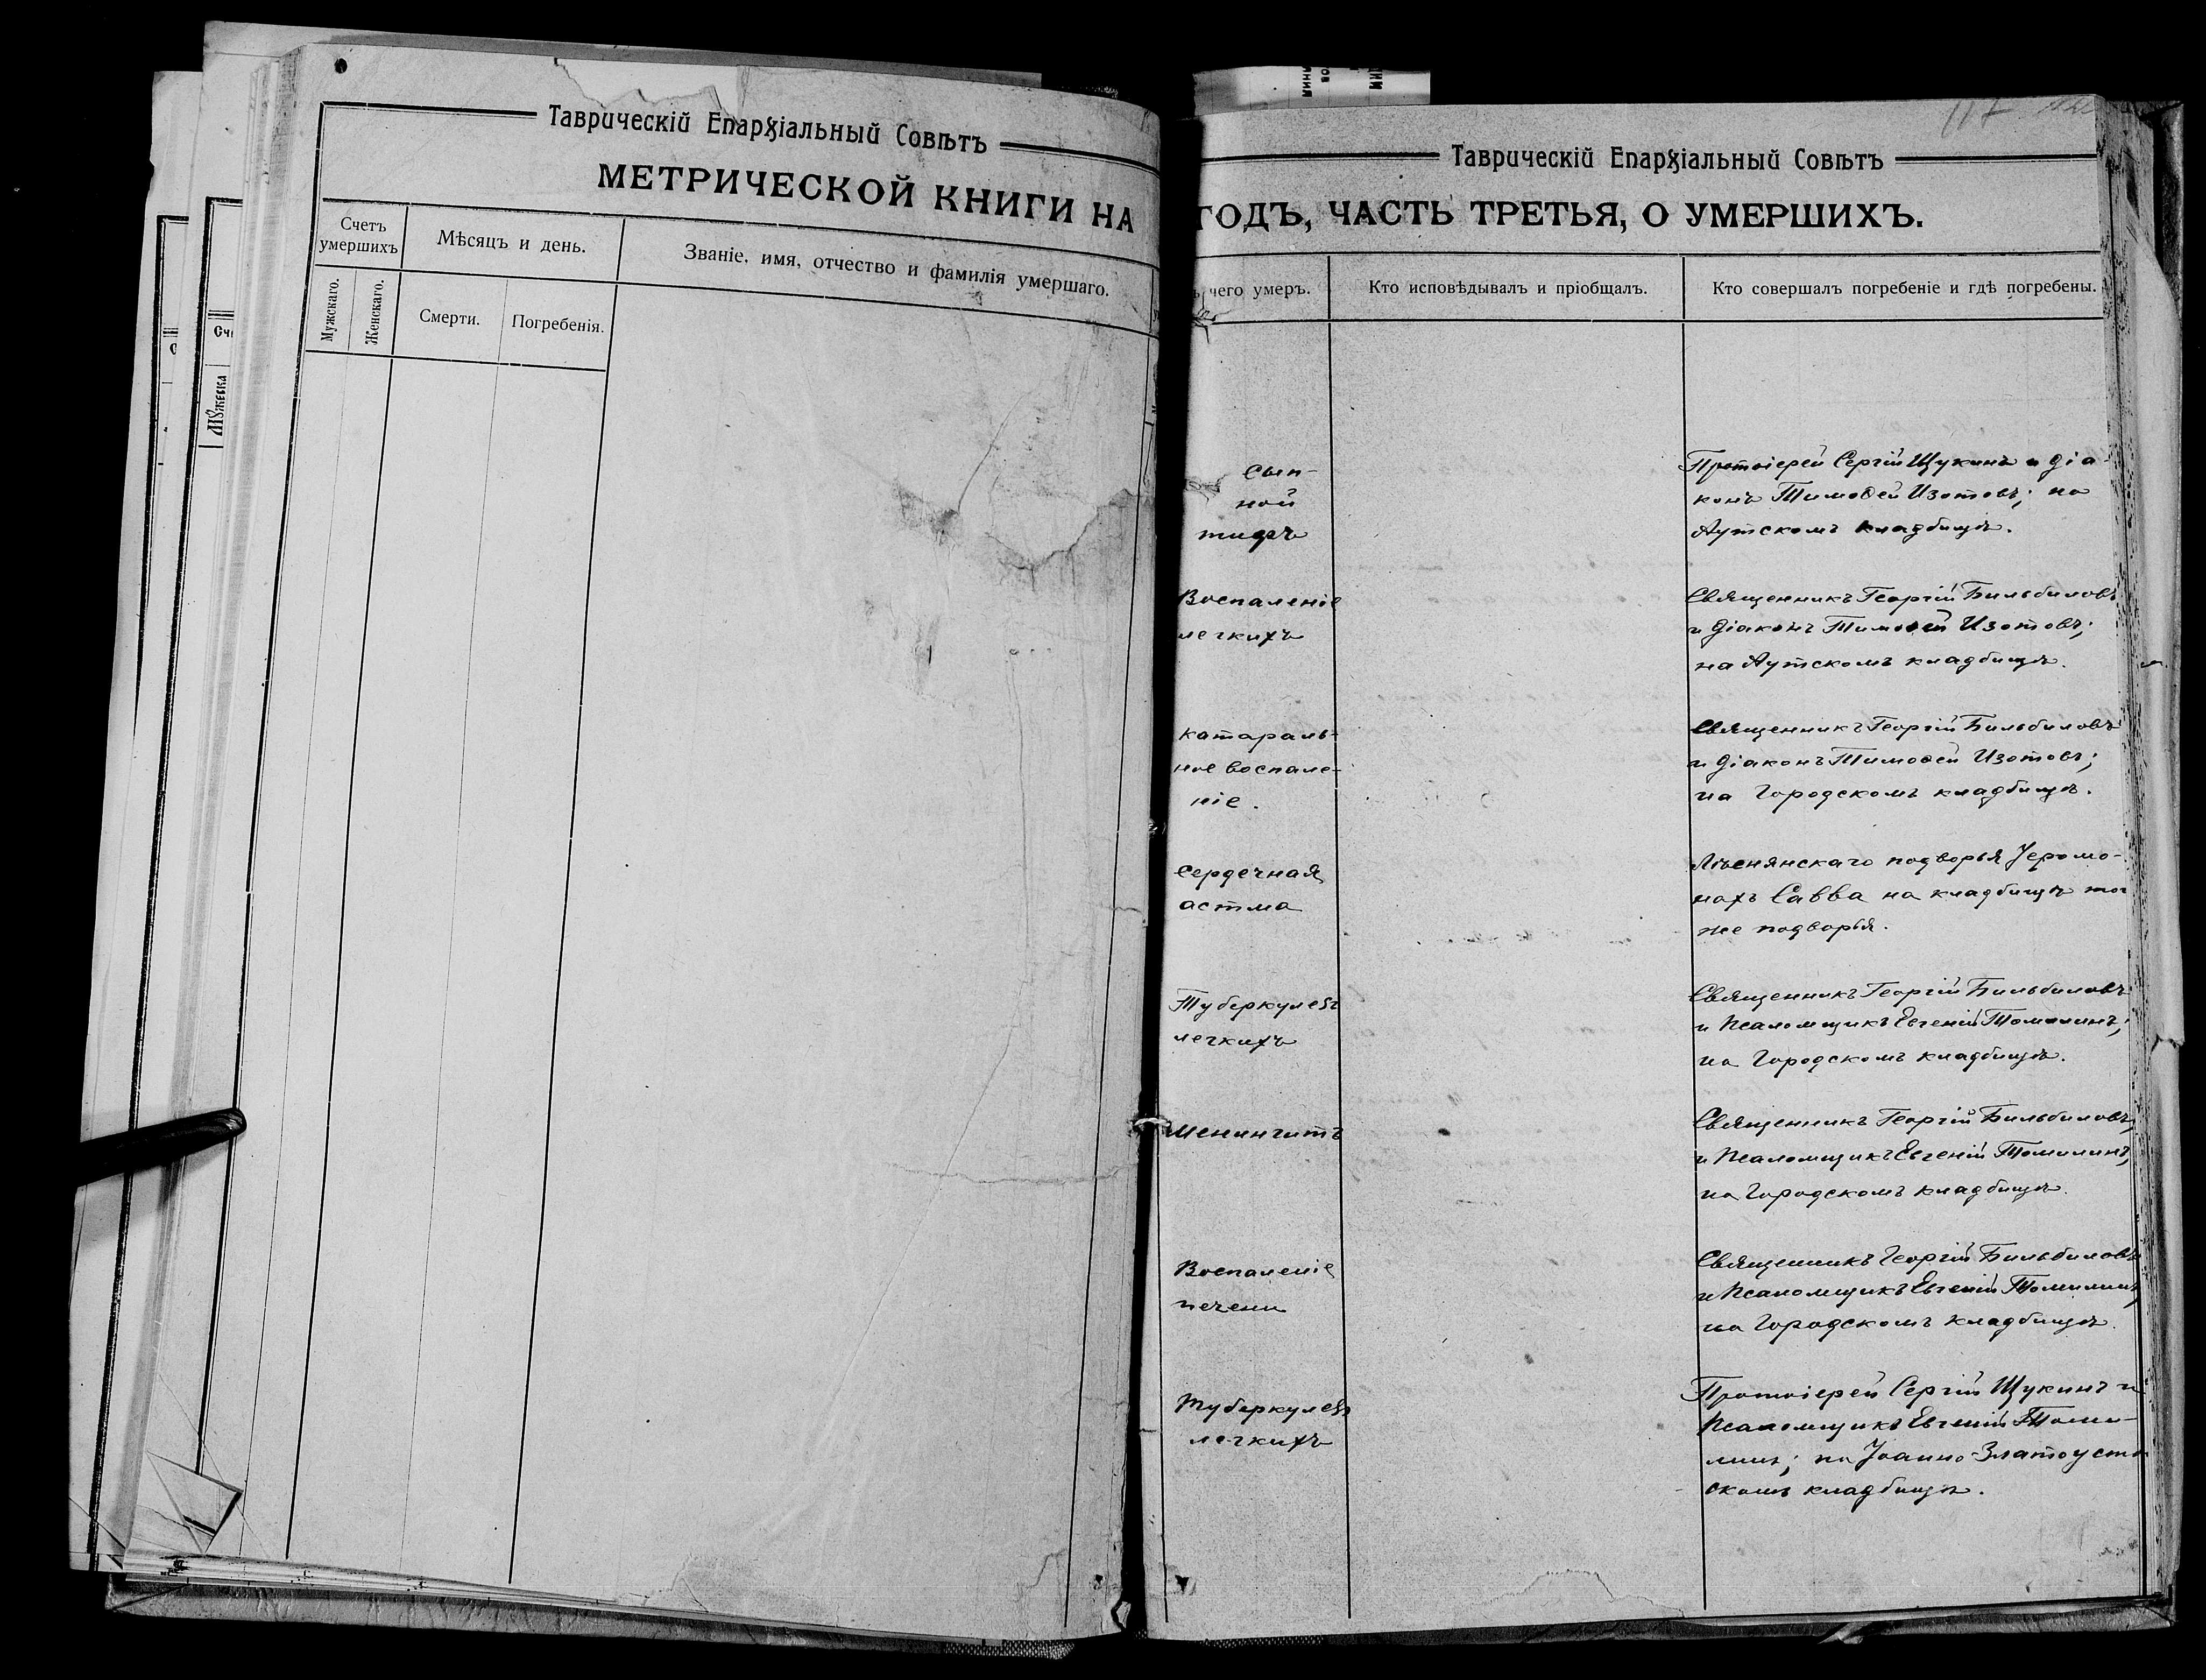 Таврическій Епархіальный Совѣтъ
МЕТРИЧЕСКОЙ КНИГИ НА
Счетъ умершихъ
Мѣсяцъ и день.
Званіе, имя, отчество и фамилія умершаго.
Мужскаго.
Женскаго.
Смерти.
Погребенія.
117
Таврическій Епархіальный Совѣтъ
ГОДЪ, ЧАСТЬ ТРЕТЬЯ, О УМЕРШИХЪ.
чего умеръ.
Кто исповѣдывалъ и пріобщалъ.
Кто совершалъ погребеніе и гдѣ погребены.
Сып-
ной
тифъ
Протоіерей Сергій Щукинъ и діа-
конъ Тимоѳей Изотовъ; на
Аутскомъ кладбищѣ.
Воспаленіе
легкихъ
Священникъ Георгій Бильбиловъ
и діаконъ Тимоѳей Изотовъ;
на Аутскомъ кладбищѣ.
катараль-
ное воспале-
ніе.
Священникъ Георгій Бильбиловъ
и діаконъ Тимоѳей Изотовъ;
на Городскомъ кладбищѣ.
Сердечная
астма
подворья Іеромо-
нахъ Савва на кладбищѣ того
же подворья.
Туберкулезъ
легкихъ
Священникъ Георгій Бильбиловъ
и Псаломщикъ Евгеній Томилинъ;
на Городскомъ кладбищѣ.
Менингитъ
Священникъ Георгій Бильбиловъ
и Псаломщикъ Евгеній Томилинъ,
на Городскомъ кладбищѣ.
Воспаленіе
печени
Священникъ Георгій Бильбиловъ
и Псаломщикъ Евгеній Томилинъ,
на Городскомъ кладбищѣ.
Туберкулезъ
легкихъ
Протоіерей Сергій Щукинъ и
Псаломщикъ Евгеній Томи-
линъ; на Іоанно-Златоустов
скомъ кладбищѣ.